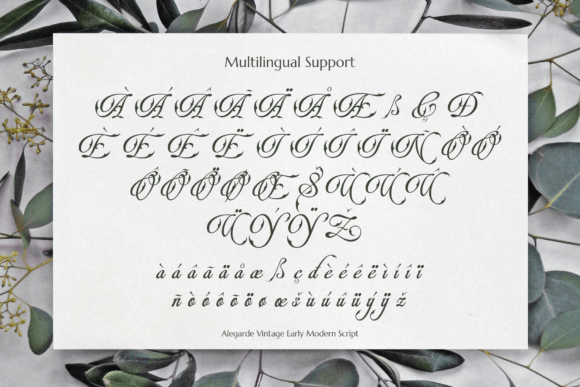 Multilingual Support
À Á Â Ã Ä Å Æ ß Ç Ð
È É Ê Ë Ì Í Î Ï Ñ Ò Ó
Ô Õ Ö Ø Œ Š Ù Ú Û
Ü Ý Ÿ Ž
à á â ã ä å æ ß ç đ è é ê ë ì í î ï
ñ ò ó ô õ ö ø œ š ù ú û ü ý ÿ ž
Alegarde Vintage Early Modern Script